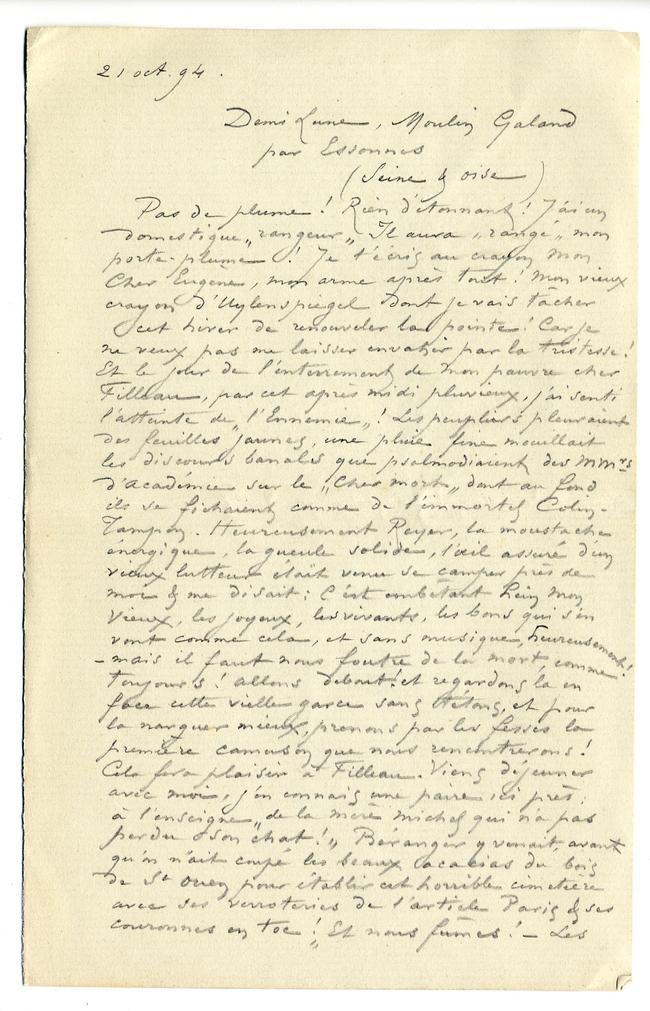 21 oct. 94.
Demi Lune, Moulin Galand
par Essonnes
(Seine & oise)
Pas de plume ! Rien d'étonnant ! J'ai un
domestique „rangeur„ Il aura „rangé„ mon
porte-plume ! Je t'écris au crayon mon
Cher Eugène, mon arme après tout ! Mon vieux
crayon d'Uylenspiegel dont je vais tâcher
cet hiver de renouveler la pointe ! Car je
ne veux pas me laisser envahir par la tristesse !
Et le jour de l'enterrement de mon pauvre cher
Filleau, par cet après midi pluvieux, j'ai senti
l'atteinte de „l'Ennemie„ ! Les peupliers pleuraient
des feuilles jaunes, une pluie fine mouillait
les discours banals que psalmodiaient des MMrs
d'académie sur le „Cher mort„ dont au fond
ils se fichaient comme de l'immortel Colin-
Tampon. Heureusement Reyer, la moustache
énergique, la gueule solide, l'œil assuré d'un
vieux lutteur était venu se camper près de
moi & me disait : C'est embêtant hein mon
vieux, les joyeux, les vivants, les bons qui s'en
vont comme cela, et sans musique, heureusement !
– mais il faut nous foutre de la mort, comme
toujours ! allons debout ! et regardons la en
face cette vieille garce sans tétons, et pour
la narguer mieux, prenons par les fesses la
première camuson que nous rencontrerons !
Cela fera plaisir à Filleau. Viens déjeuner
avec moi, j'en connais une paire ici près :
à l'enseigne „de la mère Michel qui n'a pas
perdu son chat !„ Béranger y venait, avant
qu'on n'ait coupé les beaux acacias du bois
de St Ouen pour établir cet horrible cimetière
avec ses verroteries de l'article Paris & ses
couronnes en toc !„ Et nous fûmes ! – Les